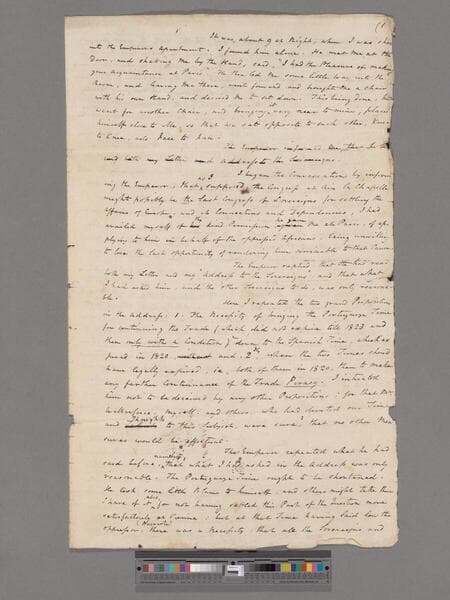 (1
It was, about 9 at Night, when I was shewn
into the Emperor's Apartment. I found him alone. He met me at the
Door, and shaking me by the Hand, said, "I had the Pleasure of making
your acquaintance at Paris". He then led me some little way into the
Room, and leaving me there, went forward and brought me a chair
with his own Hand, and desired me to sit down. This being done, he
went for another Chair, and bringing it very near to mine, placed
himself close to me, so that we sat opposite to each other, Knee
to Knee, and Face to Face.
The Emperor
and my Letter and address to the Sovereigns.
I began the Conversation by inform-
ing the Emperor, that as I supposed the Congress at Aix la Chapelle
might probably be the last Congress of Sovereigns for settling the
affairs of Europe and its Connections and Dependencies, I had
availed myself of the kind Permission he gave me at Paris, of ap-
plying to him in behalf of the oppressed Africans, being unwilling
to lose the last opportunity of rendering him serviceable to that Cause.
The Emperor replied, that he had read
both my Letter and my address to the Sovereigns, and that what
I had asked him and the other Sovereigns to do, was only reasona-
ble.
Here I repeated the two grand Propositions
in the address. 1. The Necessity of bringing the Portuguese Time
for continuing the Trade (which did not expire till 1825 and
then only with a Condition) down to the Spanish Time, which ex-
pired in 1820 and, 2dly when the two Times should
have legally expired, i.e. both of them in 1820, then to make
any further Continuance of the Trade Piracy. I intreated
him not to be deceived by any other Propositions; for that Mr.
Wilberforce, myself, and others, who had devoted our Time
and Thoughts to this Subject, were sure that no other Mea-
sures would be effectual.
The Emperor repeated what he had
said before, namely, that what I had asked in the address was only
reasonable. The Portuguese Time ought to be shortened.
He took some little Blame to himself, and others might take their
share of it also, for not having settled this Part of the Question more
satisfactorily at Vienna; but at that Time having said how the
oppression there was a Necessity, that all the Sovereigns and